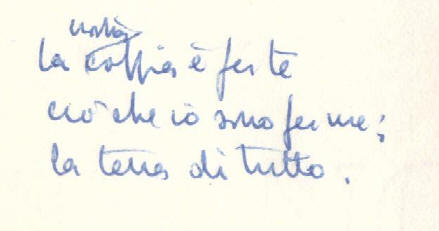 la coppia è per te
ciò che io sono per me;
la terra di tutto.